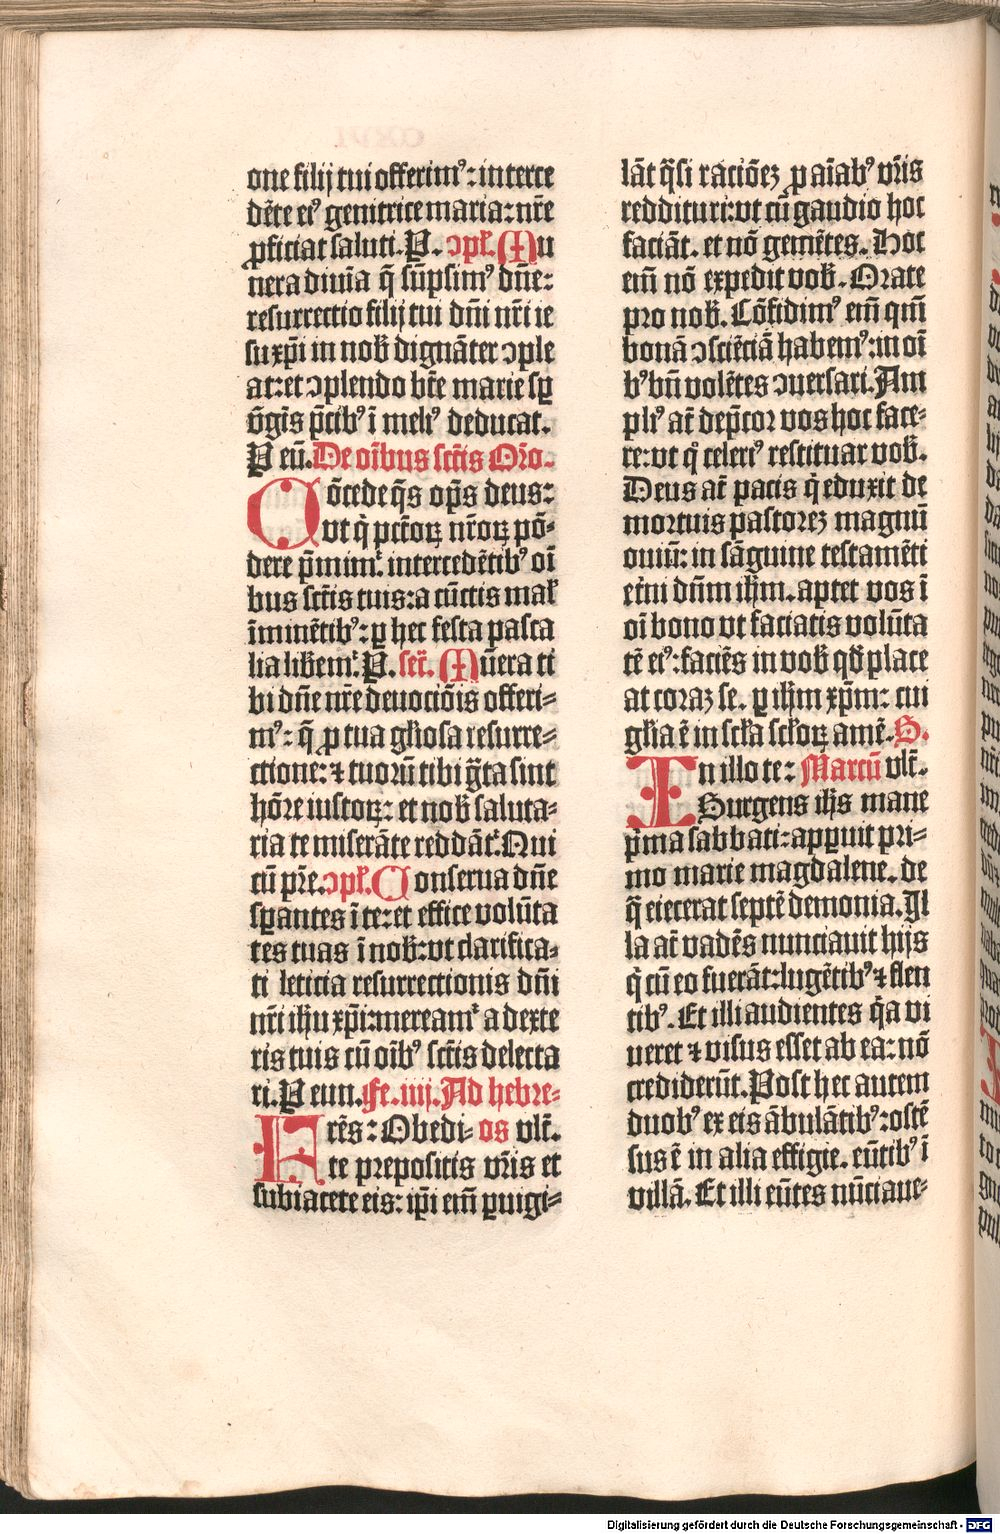 one filij tui offerimꝰ: interce
dēte eiꝰ genitrice maria: nr̄e
ꝓficiat saluti. P. ↄpĺ. Mu
nera diuīa q̄ sūpsimꝰ dn̄e:
resurrectio filij tui dn̄i nr̄i ie
su xp̄i in nob̄ dignāter ↄple
at: et ↄplendo bt̄e marie sp̄
v̄gīs p̄cibꝰ ī meliꝰ deducat.
P eū. De oībus sctīs Or̄o.
Cōcede q̄s op̄s deus:
vt q̄ pctōꝝ nr̄oꝝ pō-
dere p̄mimᷣ: intercedētibꝰ oī
bus sctīs tuis: a cūctis mal̄
īminētibꝰ: ꝑ hec festa pasca
lia lib̄emᷣ. P. sec̄. Mūera ti
bi dn̄e nr̄e deuociōis offeri-
mꝰ: q̄ ꝓ tua gl̄iosa resurre-
ctione: ⁊ tuorū tibi ḡta sint
hōre iustoꝝ: et nob̄ saluta-
ria te miserāte reddātᷣ. Qui
cū pr̄e. ↄpĺ. Conserua dn̄e
sꝑantes ī te: et effice volūta
tes tuas ī nob̄: vt clarifica-
ti leticia resurrectionis dn̄i
nr̄i ih̄u xp̄i: mereamᷣ a dexte
ris tuis cū oībꝰ sctīs delecta
ri. P eun. Fe. iiij. Ad hebre-
Frēs: Obedi- os vlt̄.
te prepositis vr̄is et
subiacete eis: ip̄i em̄ ꝑuigi-
lāt q̄si raciōeꝫ ꝓ aīabꝰ vr̄is
reddituri: vt cū gaudio hoc
faciāt. et nō gemētes. Hoc
em̄ nō expedit vob̄. Orate
pro nob̄. Cōfidimꝰ em̄ qm̄
bonā ↄsciētiā habemꝰ: in oī
bꝰ bn̄ volētes ↄuersari. Am
pliꝰ at̄ dep̄cor vos hoc face-
re: vt qͦ celeriꝰ restituar vob̄.
Deus at̄ pacis q̄ eduxit de
mortuis pastoreꝫ magnū
ouiū: in sāguine testamēti
et̄ni dn̄m ih̄m. aptet vos ī
oī bono vt faciatis volūta
tē eiꝰ: faciēs in vob̄ qd̄ place
at coraꝫ se. ꝑ ih̄m xp̄m: cui
gl̄ia ē in scl̄a scl̄oꝝ amē. S.
In illo te: Marcū vlt̄.
Surgens ih̄s mane
p̄ma sabbati: apꝑuit pri-
mo marie magdalene. de
q̄ eiecerat septē demonia. Il
la at̄ vadēs nunciauit hijs
q̄ cū eo fuerāt: lugētibꝰ ⁊ flen
tibꝰ. Et illi audientes q̄a vi
ueret ⁊ visus esset ab ea: nō
crediderūt. Post hec autem
duobꝰ ex eis ābulātibꝰ: ostē
sus ē in alia effigie. eūtibꝰ ī
villā. Et illi eūtes nūciaue-
Digitalisierung gefördert durch die Deutsche Forschungsgemeinschaft - DFG